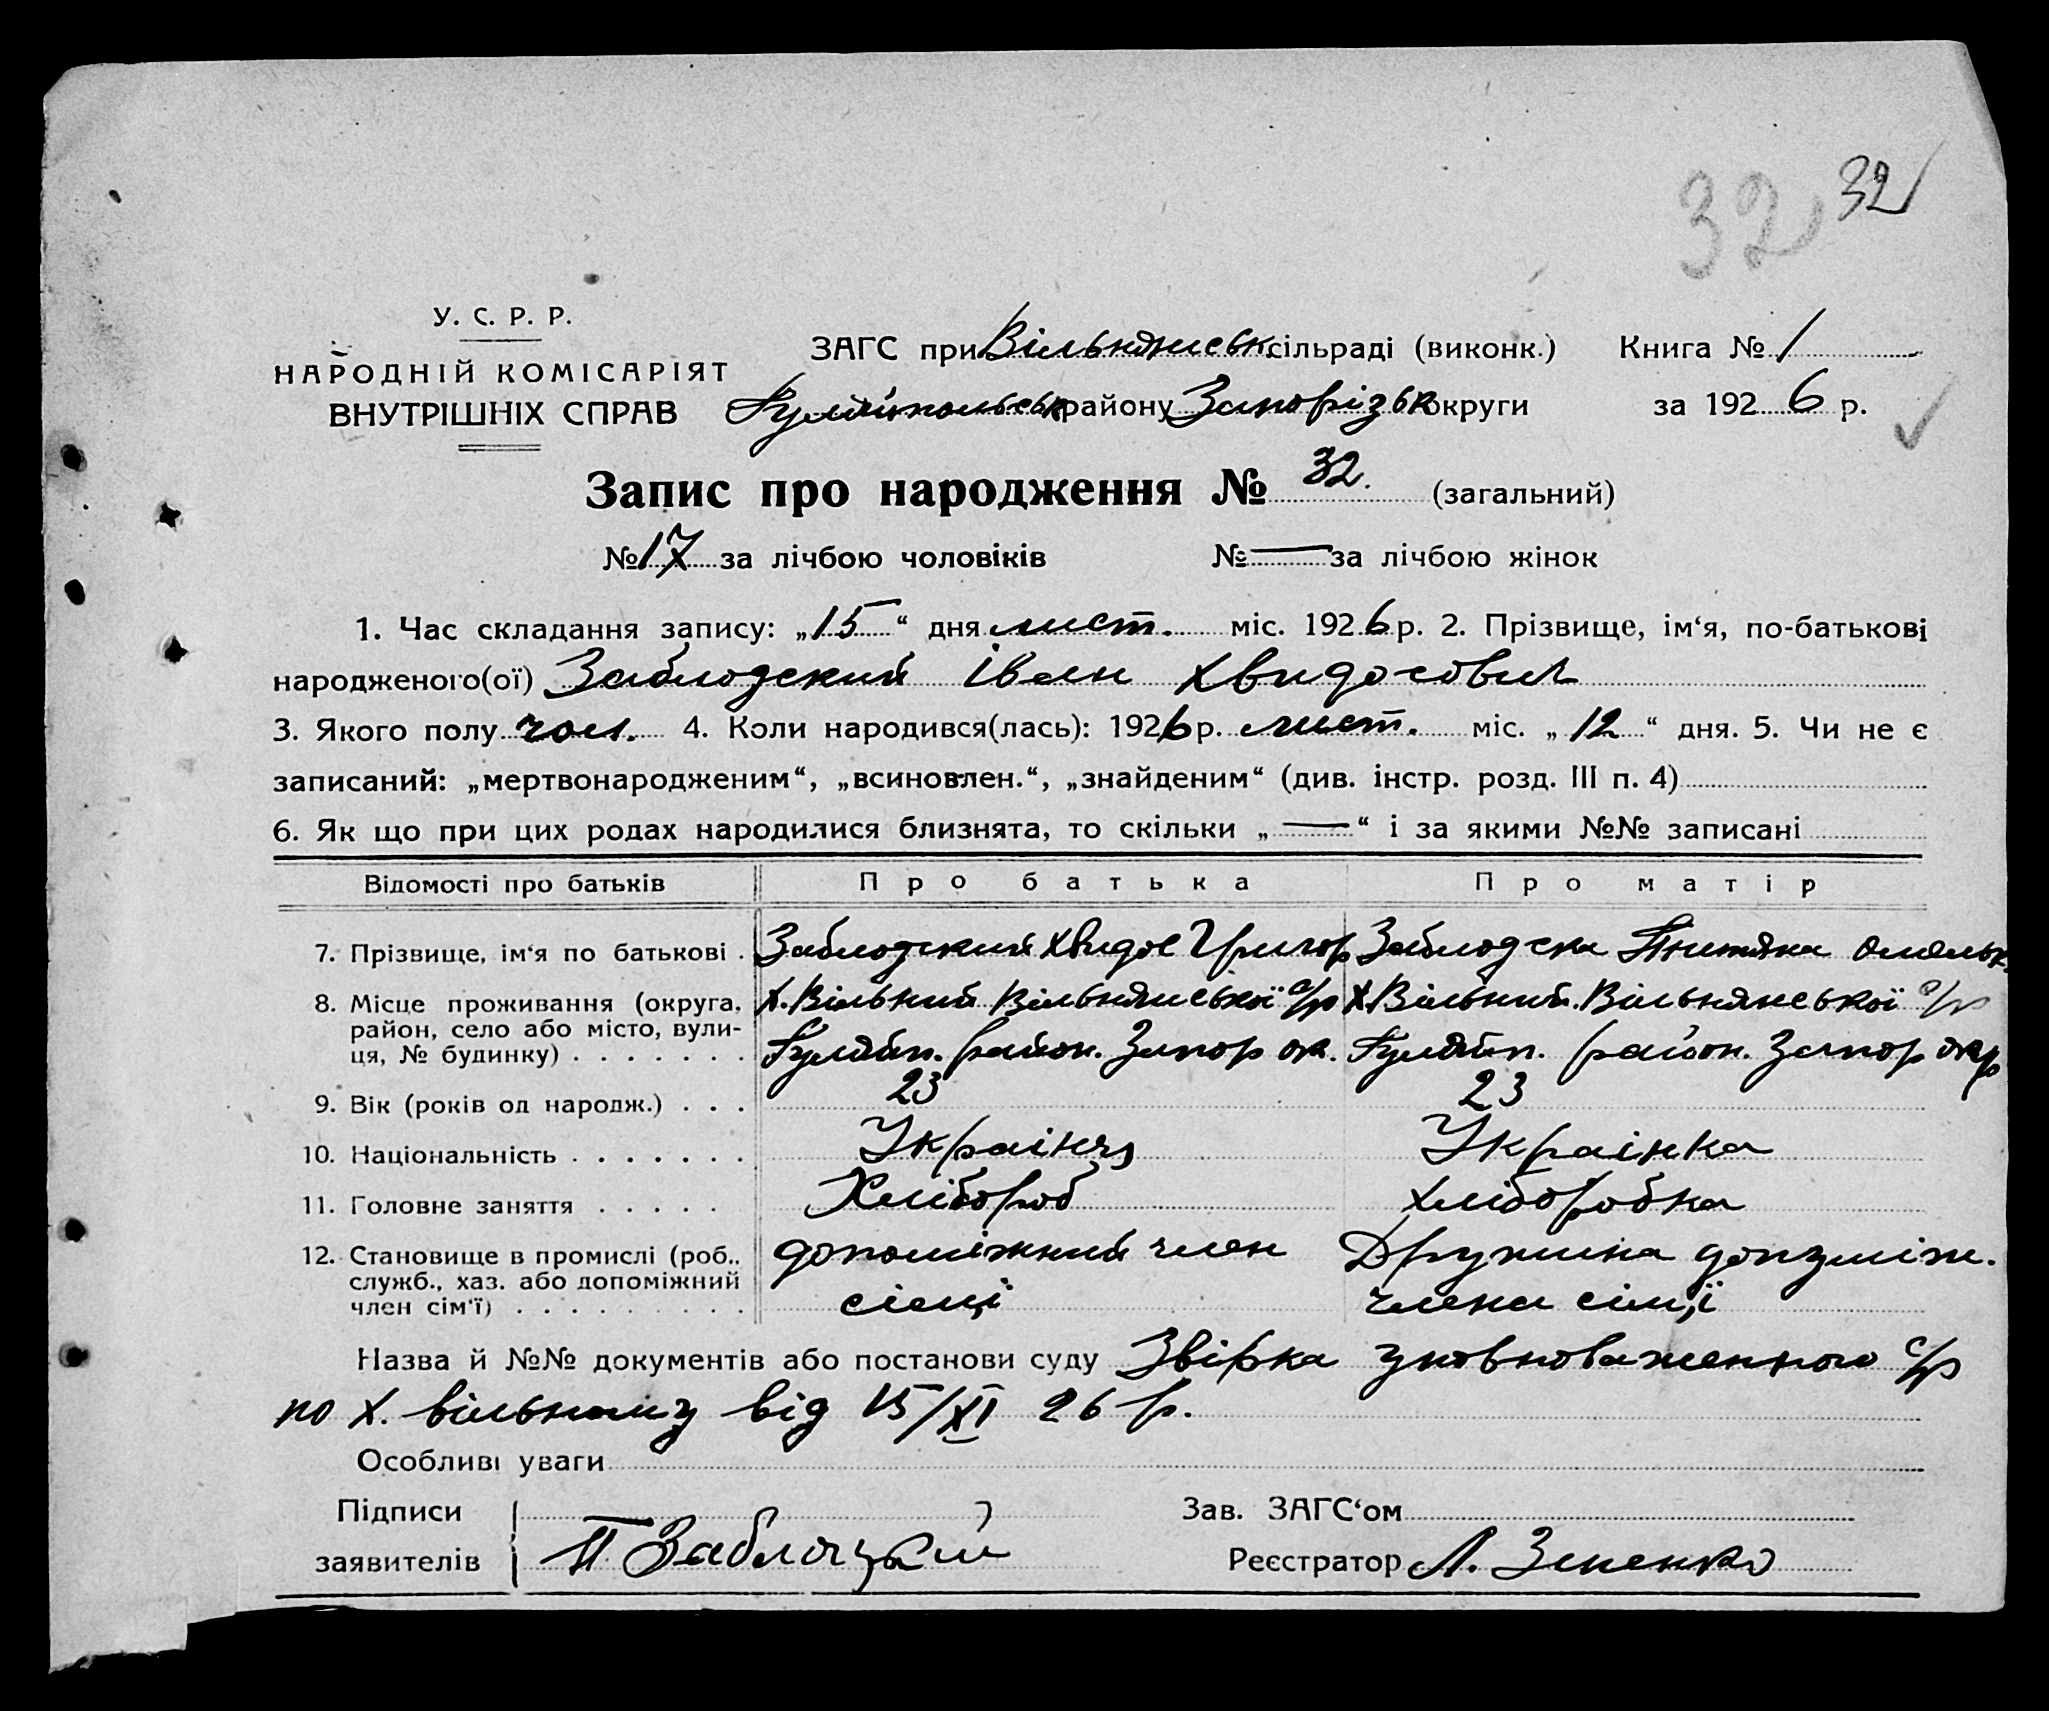 32 32
У. С. Р. Р.
НАРОДНІЙ КОМІСАРІЯТ
ВНУТРІШНІХ СПРАВ
ЗАГС при Вільнянськ сільраді (виконк.) Книга № 1
Гуляйпольськ району Запорізьк округи за 1926 р.
Запис про народження № 32. (загальний)
№ 17 за лічбою чоловіків № — за лічбою жінок
1. Час складання запису: „15“ дня лист. міс. 1926 р. 2. Прізвище, ім‘я, по-батькові
народженого(ої) Заблодский Іван Хвидосович
3. Якого полу чол. 4. Коли народився(лась): 1926 р. лист. міс. „12“ дня. 5. Чи не є
записаний: „мертвонародженим“, „всиновлен.“, „знайденим“ (див. інстр. розд. III п. 4)
6. Як що при цих родах народилися близнята, то скільки „—“ і за якими №№ записані
Відомості про батьків Про батька Про матір
7. Прізвище, ім‘я по батькові . Заблодский Хвидос Григор Заблодска Омельк.
8. Місце проживання (округа, Х. Вільний Вільнянської с/р Х. Вільний Вільнянської с/р
район, село або місто, вули-
ця, № будинку) . . . . . . . Гуляйп. район. Запор ок. Гуляйп. район. Запор окр
9. Вік (років од народж.) . . . 23 23
10. Національність . . . . . . . Українець Українка
11. Головне заняття . . . . . Хлібороб хліборобка
12. Становище в промислі (роб., допоміжний член Дружина допуміж.
служб., хаз. або допоміжний
член сім‘ї) . . . . . . . . . . сімці члена сімці
Назва й №№ документів або постанови суду Звірка уповноваженного с/р
по х. вільному від 15/XI 26 р.
Особливі уваги
Підписи Зав. ЗАГС‘ом
заявителів П. Заблоцький Реєстратор Л. Зененко